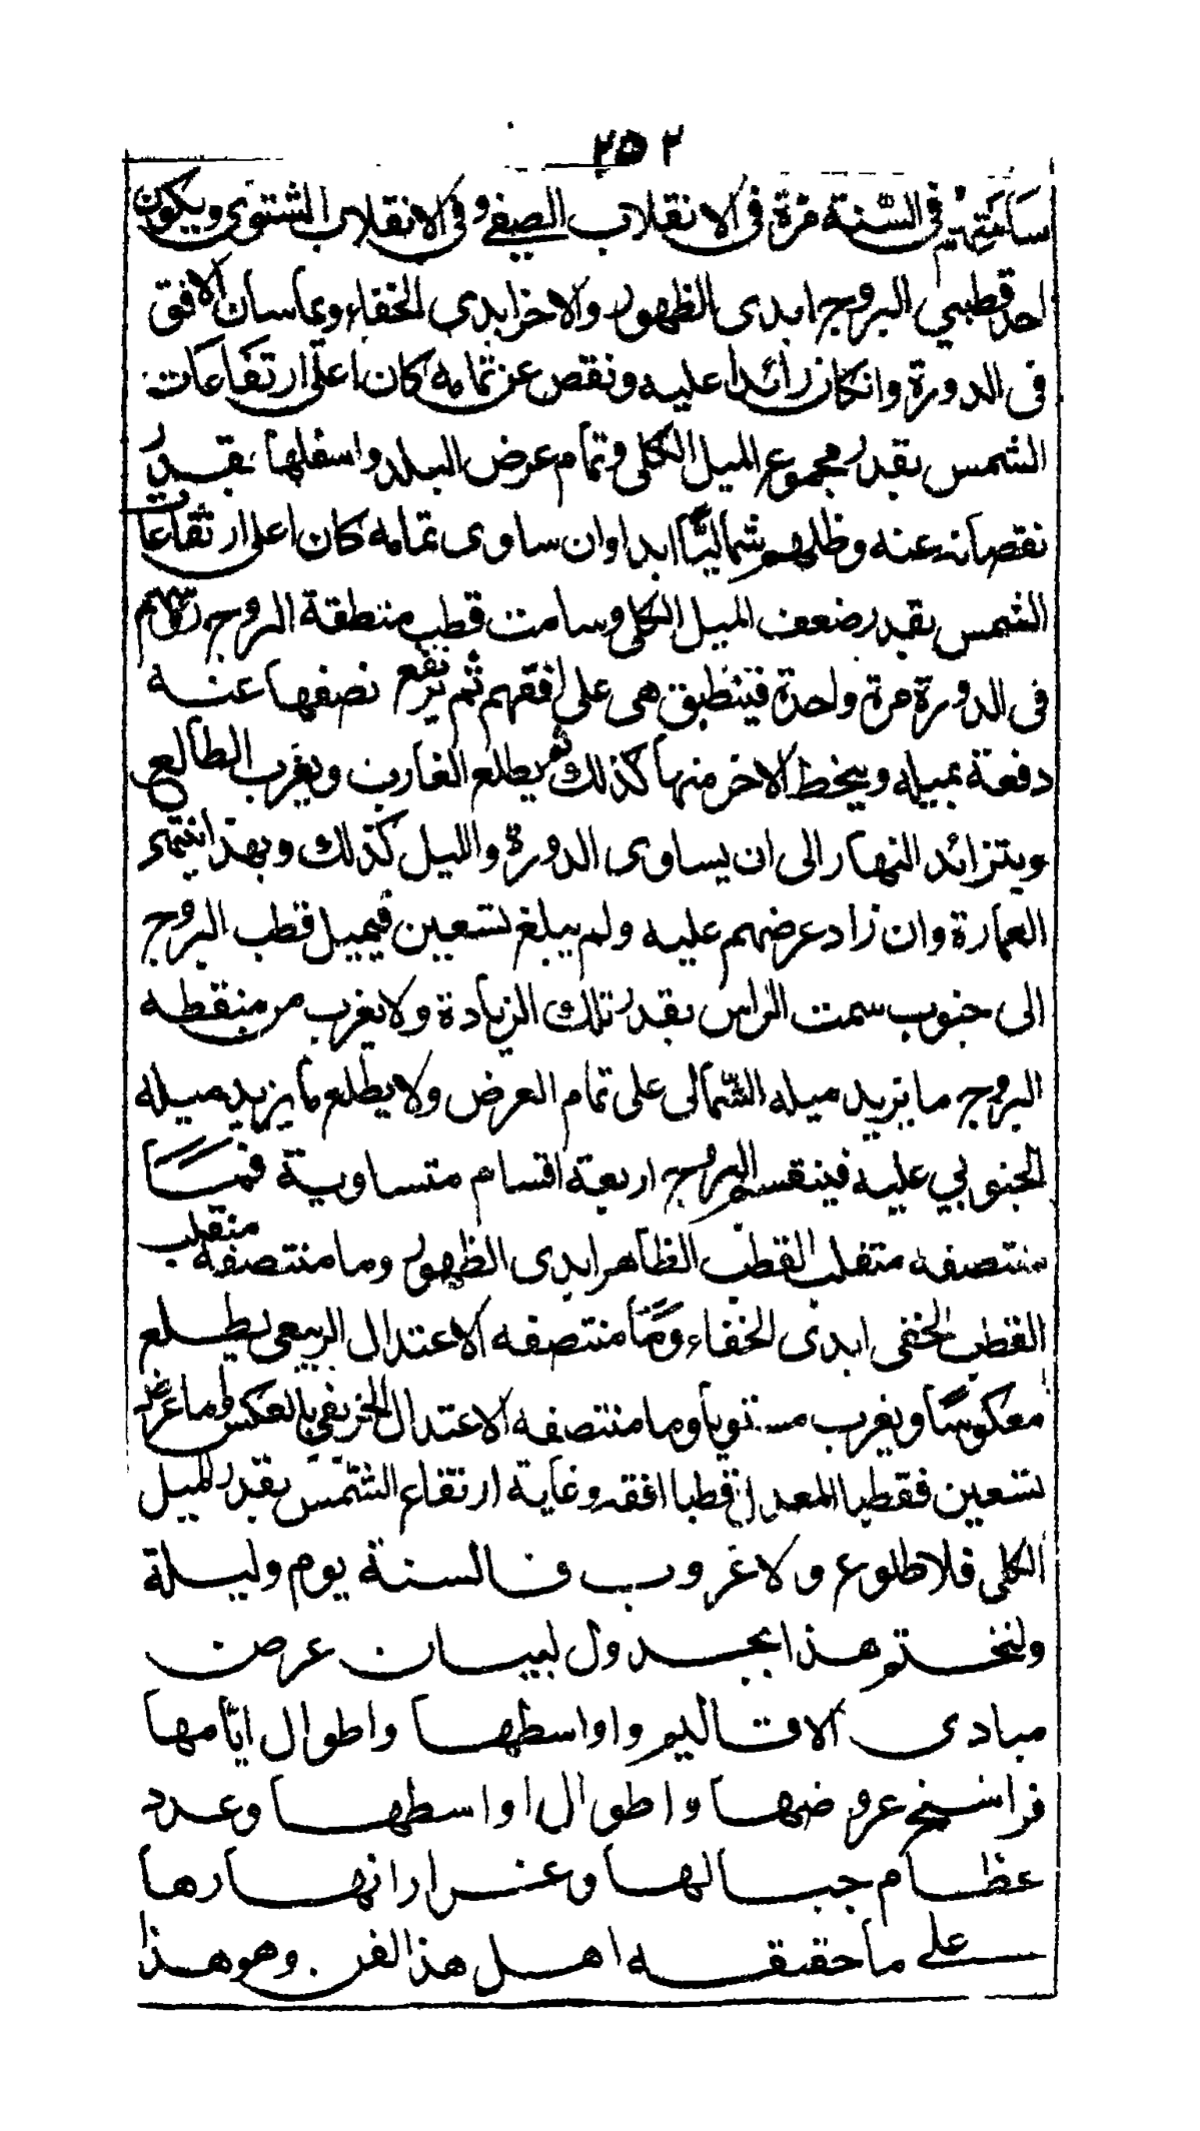 ٢٥٢
سامتهم في السنة مرة في الانقلاب الصيفي وفي الانقلاب الشتوي ويكون
احد قطبي البروج ابدى الظهور والاخر ابدى الخفاء ويماسان الافق
فى الدورة وانكان زائدا عليه ونقص عن تمامه كان اعلى ارتفاعات
الشمس بقدر مجموع الميل الكلى وتمام عرض البلد واسفلها بقدر
نقصانه عنه وظلهم شماليا ابدا وان ساوى تمامه كان اعلى ارتفاعات
الشمس بقدر ضعف الميل الكلى وسامت قطب منطقة البروج رؤسهم
فى الدورة مرة واحدة فينطبق هى على افقهم ثم يرتفع نصفها عنه
دفعة بميله وينحط الاخر منها كذلك ثم يطلع الغارب ويغرب الطالع
ويتزائد النهار الى ان يساوى الدورة والليل كذلك وبهذا ينتهى
العمارة وان زاد عرضهم عليه ولم يبلغ تسعين فيميل قطب البروج
الى جنوب سمت الراس بقدر تلك الزيادة ولا يغرب من منقطه
البروج ما يزيد ميله الشمالى على تمام العرض ولا يطلع ما يزيد ميله
الجنوبي عليه فينقسم البروج اربعة اقسام متساوية فما
منتصفه منقلب القطب الظاهر ابدى الظهور وما منتصفه منقلب
القطب الخفى ابدى الخفاء وما منتصفه الاعتدال الربيعى يطلع
معكوسا ويغرب مستويا وما منتصفه الاعتدال الخريفي بالعكس وما عرضه
تسعين فقطبا المعدل قطبا افقه وغاية ارتفاع الشمس بقدر الميل
الكلى فلا طلوع ولا غروب فالسنة يوم وليلة
ولنختم هذا بجدول لبيان عرض
مبادى الاقاليم واواسطها واطوال ايامها
فراسخ عروضها واطوال اواسطها وعدد
عظام جبالها وغزار انهارها
على ما حققه اهل هذا الفن . وهو هذا